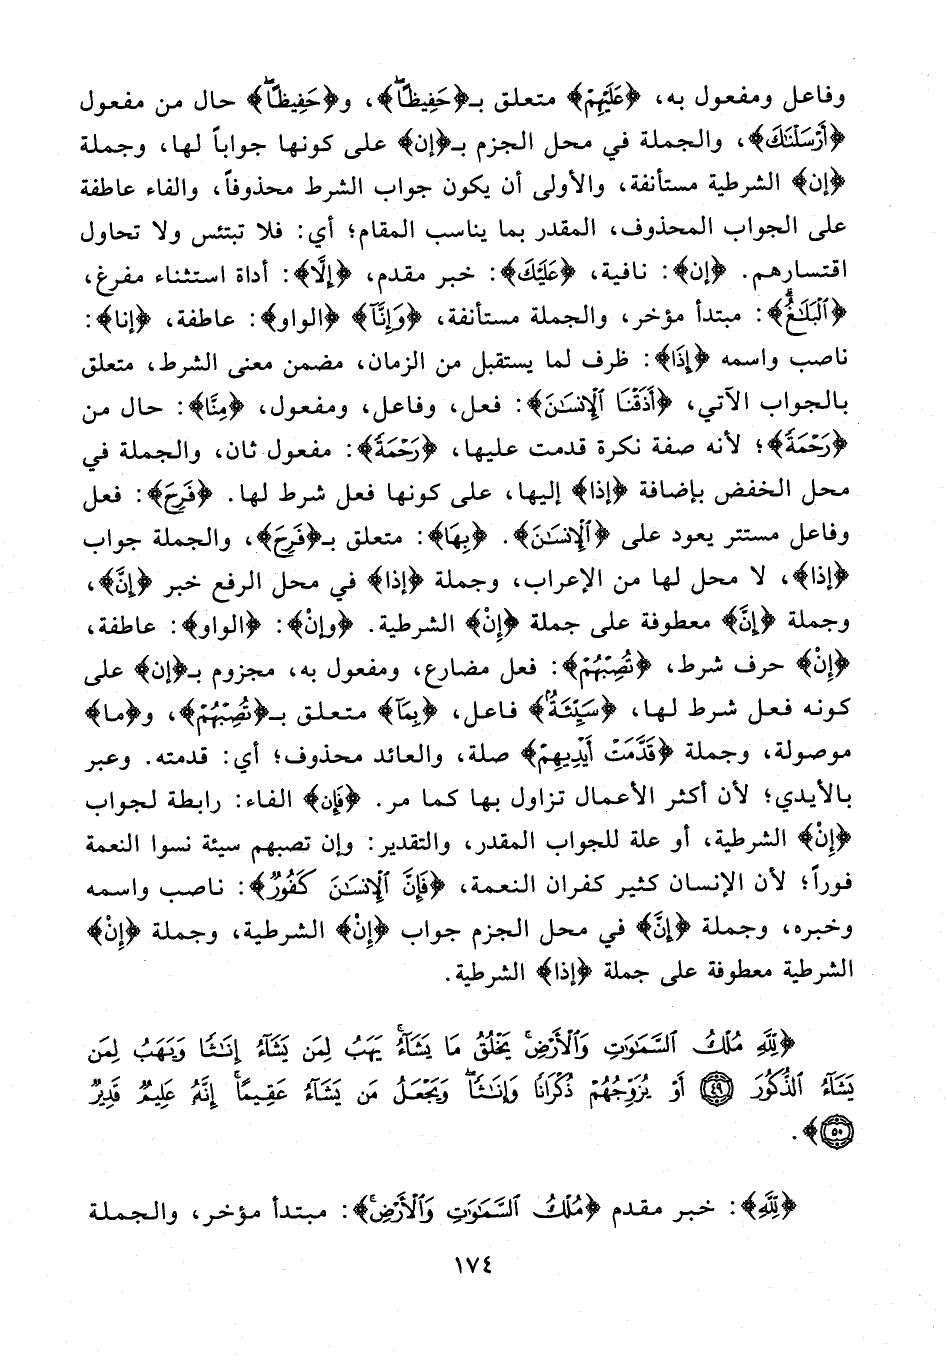 وفاعل ومفعول به، ﴿عَلَيْهِمْ﴾ متعلق بـ﴿حَفِيظًاۖ﴾، و﴿حَفِيظًاۖ﴾ حال من مفعول
﴿أَرْسَلْنَٰكَ﴾، والجملة في محل الجزم بـ﴿إن﴾ على كونها جواباً لها، وجملة
﴿إن﴾ الشرطية مستأنفة، والأولى أن يكون جواب الشرط محذوفاً، والفاء عاطفة
على الجواب المحذوف، المقدر بما يناسب المقام؛ أي: فلا تبتئس ولا تحاول
اقتسارهم. ﴿إن﴾: نافية، ﴿عَلَيْكَ﴾: خبر مقدم، ﴿إِلَّا﴾: أداة استثناء مفرغ،
﴿ٱلْبَلَٰغُۗ﴾: مبتدأ مؤخر، والجملة مستأنفة، ﴿وَإِنَّآ﴾ ﴿الواو﴾: عاطفة، ﴿إنا﴾:
ناصب واسمه ﴿إِذَا﴾: ظرف لما يستقبل من الزمان، مضمن معنى الشرط، متعلق
بالجواب الآتي، ﴿أَذَقْنَا ٱلْإِنسَٰنَ﴾: فعل، وفاعل، ومفعول، ﴿مِنَّا﴾: حال من
﴿رَحْمَةً﴾؛ لأنه صفة نكرة قدمت عليها، ﴿رَحْمَةً﴾: مفعول ثان، والجملة في
محل الخفض بإضافة ﴿إذا﴾ إليها، على كونها فعل شرط لها. ﴿فَرِحَ﴾: فعل
وفاعل مستتر يعود على ﴿ٱلْإِنسَٰنَ﴾. ﴿بِهَا﴾: متعلق بـ﴿فَرِحَ﴾، والجملة جواب
﴿إذا﴾، لا محل لها من الإعراب، وجملة ﴿إذا﴾ في محل الرفع خبر ﴿إنَّ﴾،
وجملة ﴿إنَّ﴾ معطوفة على جملة ﴿إنْ﴾ الشرطية. ﴿وإنْ﴾: ﴿الواو﴾: عاطفة،
﴿إنْ﴾ حرف شرط، ﴿تُصِبْهُمْ﴾: فعل مضارع، ومفعول به، مجزوم بـ﴿إن﴾ على
كونه فعل شرط لها، ﴿سَيِّئَةٌۢ﴾ فاعل، ﴿بِمَآ﴾ متعلق بـ﴿تُصِبْهُمْ﴾، و﴿ما﴾
موصولة، وجملة ﴿قَدَّمَتْ أَيْدِيهِمْ﴾ صلة، والعائد محذوف؛ أي: قدمته. وعبر
بالأيدي؛ لأن أكثر الأعمال تزاول بها كما مر. ﴿فَإِن﴾ الفاء: رابطة لجواب
﴿إنْ﴾ الشرطية، أو علة للجواب المقدر، والتقدير: وإن تصبهم سيئة نسوا النعمة
فوراً؛ لأن الإنسان كثير كفران النعمة، ﴿فَإِنَّ ٱلْإِنسَٰنَ كَفُورٌ﴾: ناصب واسمه
وخبره، وجملة ﴿إنَّ﴾ في محل الجزم جواب ﴿إنْ﴾ الشرطية، وجملة ﴿إنْ﴾
الشرطية معطوفة على جملة ﴿إذا﴾ الشرطية.
﴿لِلَّهِ مُلْكُ ٱلسَّمَٰوَٰتِ وَٱلْأَرْضِۚ يَخْلُقُ مَا يَشَآءُۚ يَهَبُ لِمَن يَشَآءُ إِنَٰثًا وَيَهَبُ لِمَن
يَشَآءُ ٱلذُّكُورَ ٤٩ أَوْ يُزَوِّجُهُمْ ذُكْرَانًا وَإِنَٰثًاۖ وَيَجْعَلُ مَن يَشَآءُ عَقِيمًاۚ إِنَّهُۥ عَلِيمٌ قَدِيرٌ
٥٠﴾.
﴿لِلَّهِ﴾: خبر مقدم ﴿مُلْكُ ٱلسَّمَٰوَٰتِ وَٱلْأَرْضِۚ﴾: مبتدأ مؤخر، والجملة
١٧٤